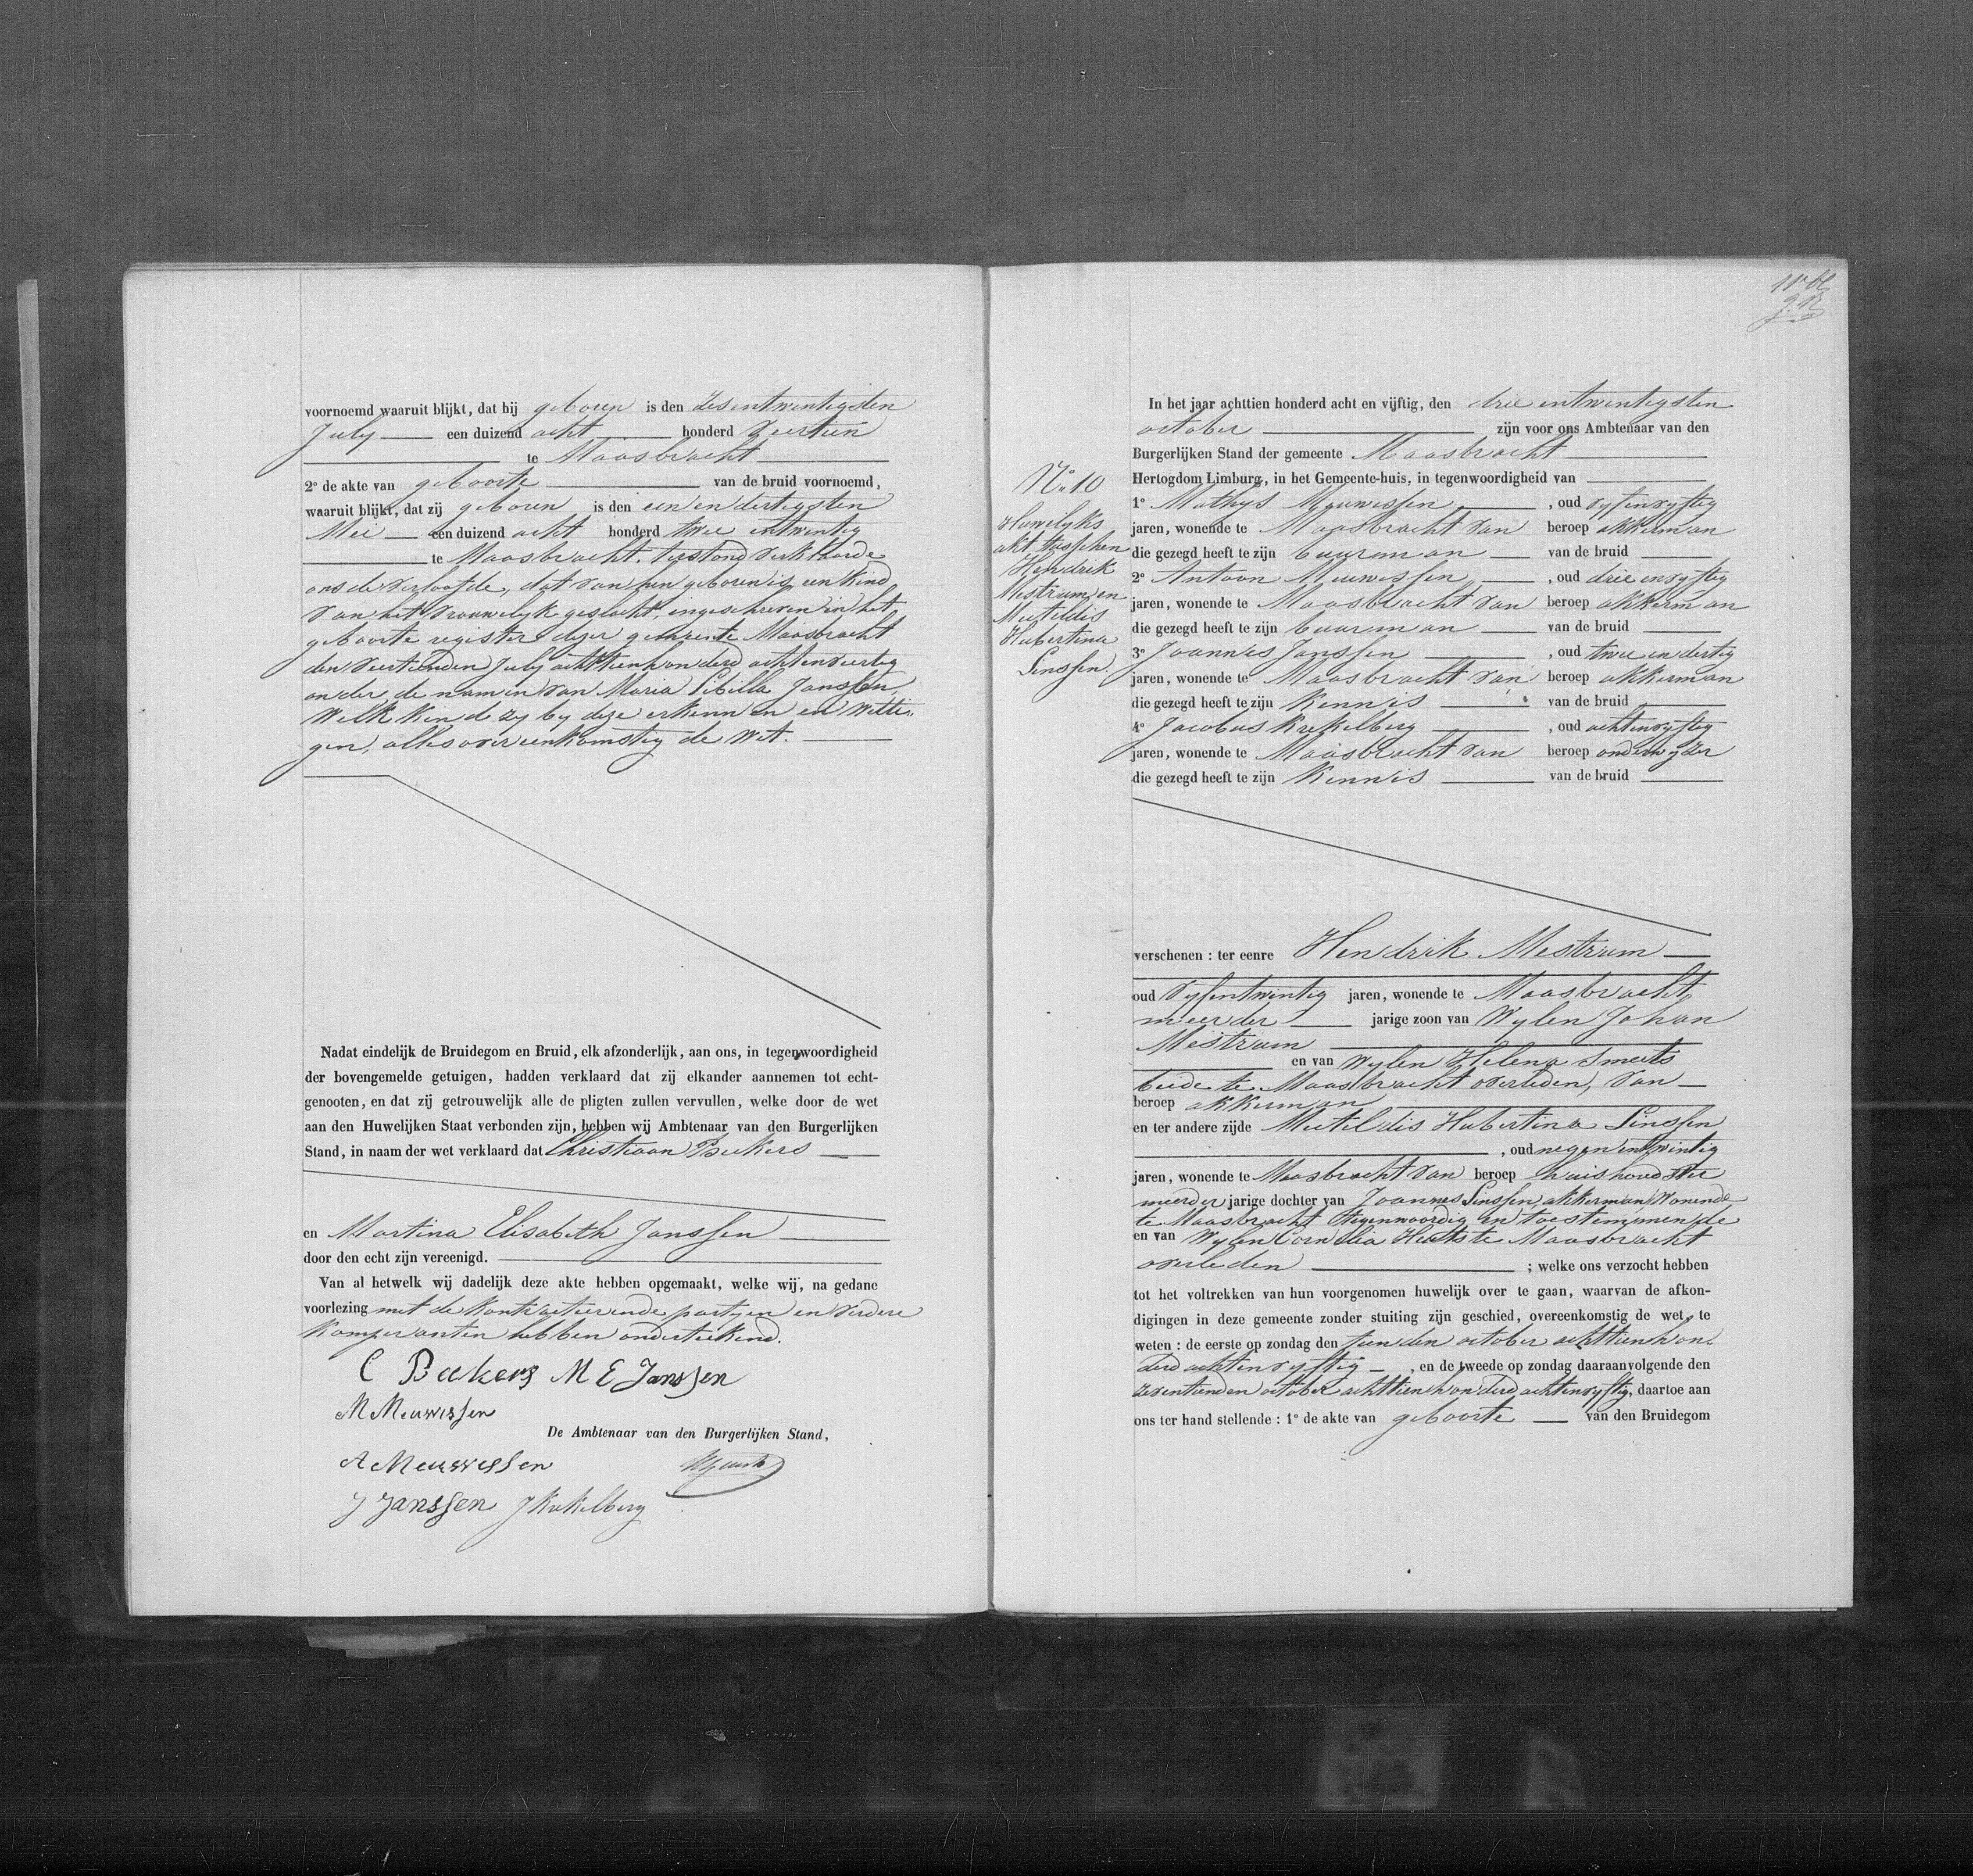 voornoemd waaruit blijkt, dat hij geboren is den zesentwintigsten
July een duizend acht honderd veertien
te Maasbracht
2° de akte van geboorte van de bruid voornoemd,
waaruit blijkt, dat zij geboren is den een en dertigsten
Mei een duizend acht honderd twee entwintig
te Maasbracht. Terstond verklaarde
ons de verloofde, dat van hun geboren is een kind
van het vrouwelyk geslacht, ingeschreven in het
geboorte register dezer gemeente Maasbracht
den veertienden July achttienhonderd achtenveertig
onder de namen van Maria Sibilla Janssen,
welk kind zy by deze erkennen en wetti-
gen, alles overeenkomstig de wet.
Nadat eindelijk de Bruidegom en Bruid, elk afzonderlijk, aan ons, in tegenwoordigheid
der bovengemelde getuigen, hadden verklaard dat zij elkander aannemen tot echt-
genooten, en dat zij getrouwelijk alle de pligten zullen vervullen, welke door de wet
aan den Huwelijken Staat verbonden zijn, hebben wij Ambtenaar van den Burgerlijken
Stand, in naam der wet verklaard dat Christiaan Beckers
en Martina Elisabeth Janssen
door den echt zijn vereenigd.
Van al hetwelk wij dadelijk deze akte hebben opgemaakt, welke wij, na gedane
voorlezing met de kontracteerende partyen en verdere
komparanten hebben onderteekend.
C Beckers M E Janssen
M Meuwissen
De Ambtenaar van den Burgerlijken Stand,
A Meuwessen
J Janssen J Krekelberg
11e bl
In het jaar achttien honderd acht en vijftig, den drie entwintigsten
october zijn voor ons Ambtenaar van den
Burgerlijken Stand der gemeente Maasbracht
Hertogdom Limburg, in het Gemeente-huis, in tegenwoordigheid van
N° 10
Huwelyks
akt tusschen
Hendrik
Mestrum en
Mectildis
Hubertina
Linssen.
1° Mathys Meuwissen, oud vyfenvyftig
jaren, wonende te Maasbracht van beroep akkerman
die gezegd heeft te zijn buurman van de bruid
2° Antoon Meuwissen, oud drie envyftig
jaren, wonende te Maasbracht van beroep akkerman
die gezegd heeft te zijn buurman van de bruid
3° Joannes Janssen, oud twee en dertig
jaren, wonende te Maasbracht van beroep akkerman
die gezegd heeft te zijn kennis van de bruid
4° Jacobus Krekelberg, oud achtenvyftig
jaren, wonende te Maasbracht van beroep onderwyzer
die gezegd heeft te zijn kennis van de bruid
verschenen : ter eenre Hendrik Mestrum
oud vyfentwintig jaren, wonende te Maasbracht,
meerder jarige zoon van wylen Johan
Mestrum
en van wylen Helena Smeets
beide te Maasbracht overleden, van
beroep akkerman
en ter andere zijde Mectildis Hubertina Linssen
, oud negen entwintig
jaren, wonende te Maasbracht van beroep huishoudster
meerder jarige dochter van Joannes Linssen, akkerman, wonende
te Maasbracht tegenwoordig en toestemmende
en van wylen Cornelia te Maasbracht
overleden ; welke ons verzocht hebben
tot het voltrekken van hun voorgenomen huwelijk over te gaan, waarvan de afkon-
digingen in deze gemeente zonder stuiting zijn geschied, overeenkomstig de wet, te
weten : de eerste op zondag den tienden october achttienhon-
derd achtenvyftig, en de tweede op zondag daaraanvolgende den
zeventienden october achttienhonderd achtenvyftig, daartoe aan
ons ter hand stellende : 1° de akte van geboorte van den Bruidegom